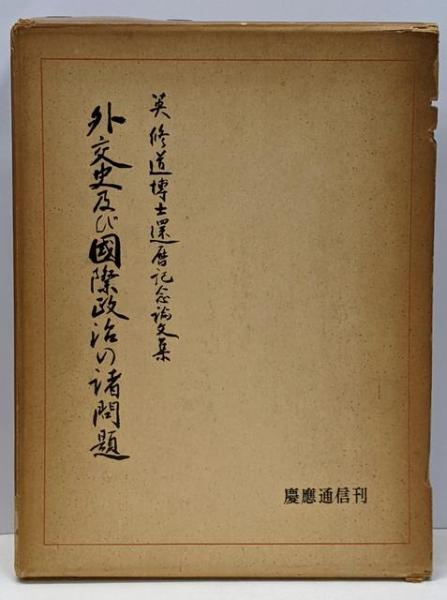 英修道博士還暦記念論文集
外交史及び國際政治の諸問題
慶應通信刊